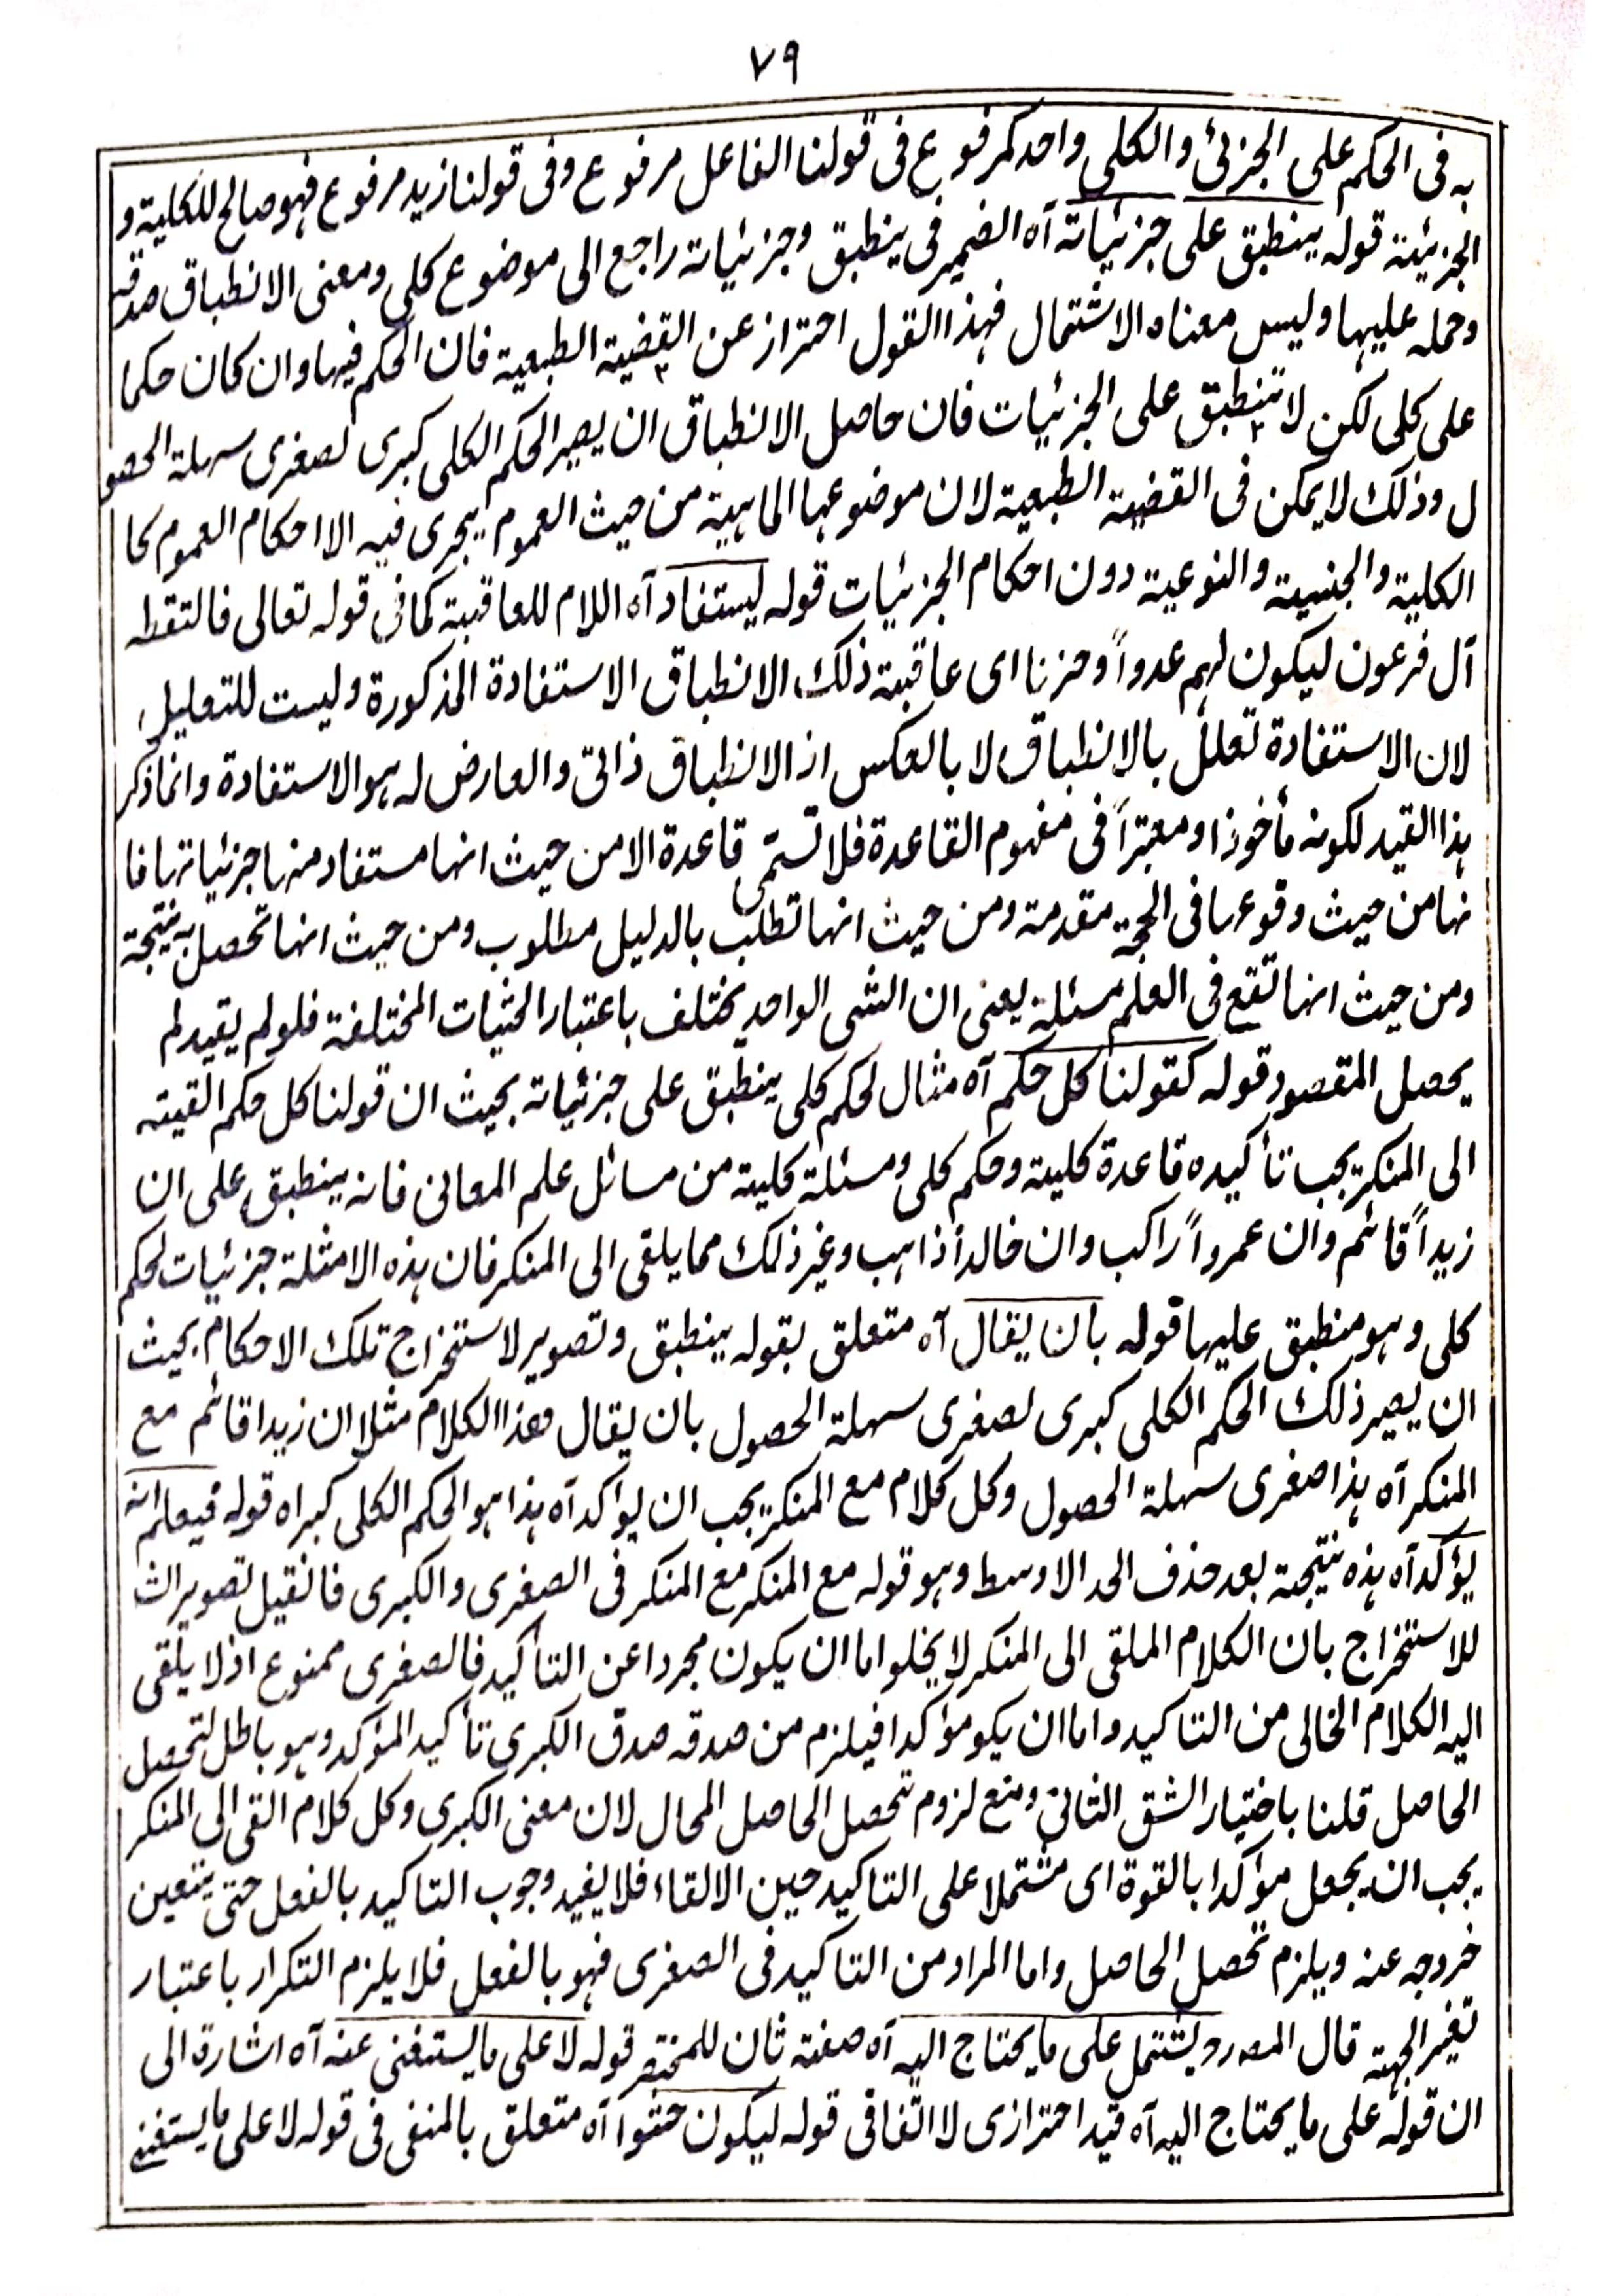 ٧٩
به فى الحكم على الجزئ والكلى واحد كمرفوع فى قولنا الفاعل مرفوع وفى قولنا زيد مرفوع فهو صالح للكلية و
الجزئية قوله ينطبق على جزئياته آه الضمير فى ينطبق وجزئياته راجع الى موضوع كلى ومعنى الانطباق صدقه
وحمله عليها وليس معناه الاشتمال فهذا القول احتراز عن القضية الطبعية فان الحكم فيها وان كان حكما
على كلى لكن لا تنطبق على الجزئيات فان حاصل الانطباق ان يصير الحكم الكلى كبرى لصغرى سهلة الحصو
ل وذلك لا يمكن فى القضية الطبعية لان موضوعها الماهية من حيث العموم يجرى فيه الا احكام العموم كا
الكلية والجنسية والنوعية دون احكام الجزئيات قوله ليستفاد آه اللام للعاقبة كما فى قوله تعالى فالتقطه
آل فرعون ليكون لهم عدواً وحزنا اى عاقبة ذلك الانطباق الاستفادة المذكورة وليست للتعليل
لان الاستفادة تعلل بالانطباق لا بالعكس اذ الانطباق ذاتى والعارض له هو الاستفادة وانما ذكر
هذا القيد لكونه مأخوذا ومعتبراً فى مفهوم القاعدة فلا تسمّى قاعدة الا من حيث انها مستفاد منها جزئياتها فا
نها من حيث وقوعها فى الحجة مقدمة ومن حيث انها تطلب بالدليل مطلوب ومن حيث انها تحصل به نتيجة
ومن حيث انها تقع فى العلم مسئلة يعنى ان الشى الواحد يختلف باعتبار الحثيات المختلفة فلو لم يقيد لم
يحصل المقصود قوله كقولنا كل حكم آه مثال لحكم كلى ينطبق على جزئياته بحيث ان قولنا كل حكم القيته
الى المنكر يجب تأكيده قاعدة كلية وحكم كلى ومسئلة كلية من مسائل علم المعانى فانه ينطبق على ان
زيداً قائم وان عمرواً راكب وان خالداً ذاهب وغير ذلك مما يلقى الى المنكر فان هذه الامثلة جزئيات لحكم
كلى وهو منطبق عليها قوله بان يقال آه متعلق بقوله ينطبق وتصوير لاستخراج تلك الاحكام بحيث
ان يصير ذلك الحكم الكلى كبرى لصغرى سهلة الحصول بان يقال هذا الكلام مثلا ان زيدا قائم مع
المنكر آه هذا صغرى سهلة الحصول وكل كلام مع المنكر يجب ان يؤكد آه هذا هو الحكم الكلى كبراه قوله فيعلم انه
يؤكد آه هذه نتيجة بعد حذف الحد الاوسط وهو قوله مع المنكر مع المنكر فى الصغرى والكبرى فانقيل تصوير الشـ
للاستخراج بان الكلام الملقى الى المنكر لا يخلو اما ان يكون مجردا عن التأكيد فالصغرى ممنوع اذ لا يلقى
اليه الكلام الخالى من التاكيد واما ان يكو مؤكدا فيلزم من صدقه صدق الكبرى تأكيد المؤكد وهو باطل لتحصل
الحاصل قلنا باختيار الشق الثانى ومنع لزوم تحصل الحاصل المحال لان معنى الكبرى وكل كلام القى الى المنكر
يجب ان يجعل مؤكدا بالقوة اى مشتملا على التاكيد حين الالقاء فلا يفيد وجوب التاكيد بالفعل حتى يتعين
خروجه عنه ويلزم تحصل الحاصل واما المراد من التاكيد فى الصغرى فهو بالفعل فلا يلزم التكرار باعتبار
تغير الجهة قال المصـ رح ويشتمل على ما يحتاج اليه آه صفته ثان للمختصر قوله لا على ما يستغنى عنه آه اشارة الى
ان قوله على ما يحتاج اليه آه قيد احترازى لا اتفاقى قوله ليكون حشوا آه متعلق بالمنفى فى قوله لا على ما يستغنے